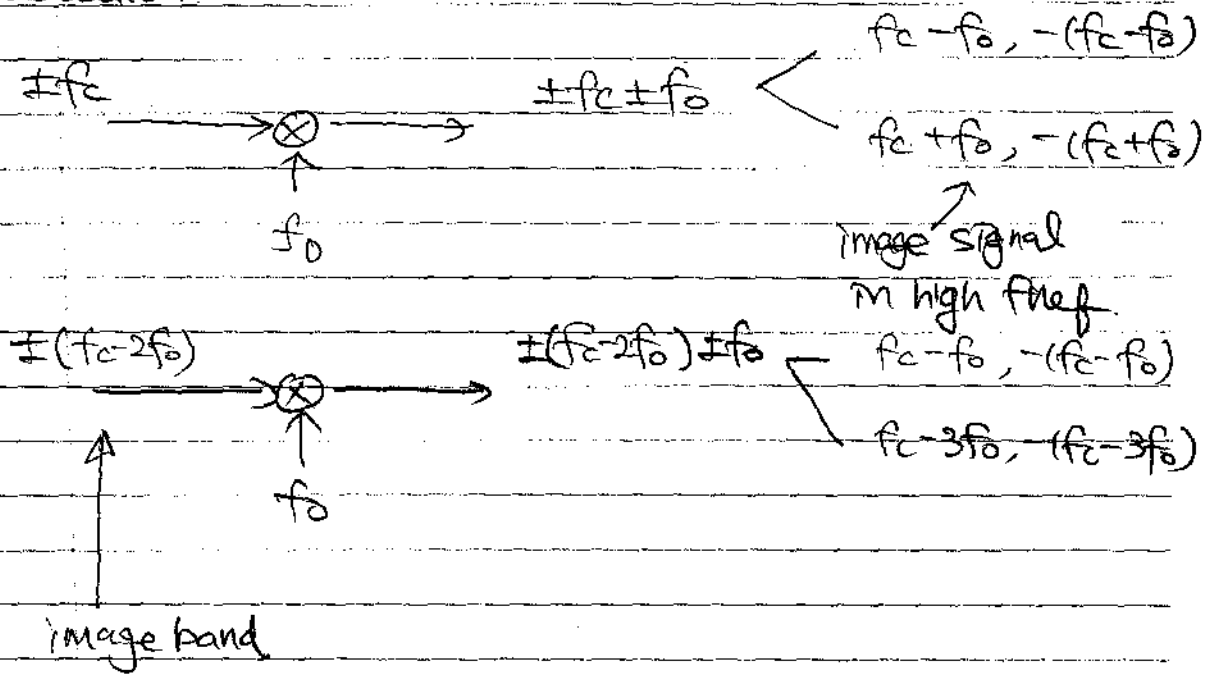 fc - fo, -(fc - fo)
±fc
±fc ± fo
fc + fo, -(fc + fo)
fo
image signal
in high freq.
±(fc - 2fo)
±(fc - 2fo) ± fo
fc - fo, -(fc - fo)
fc - 3fo, -(fc - 3fo)
fo
image band